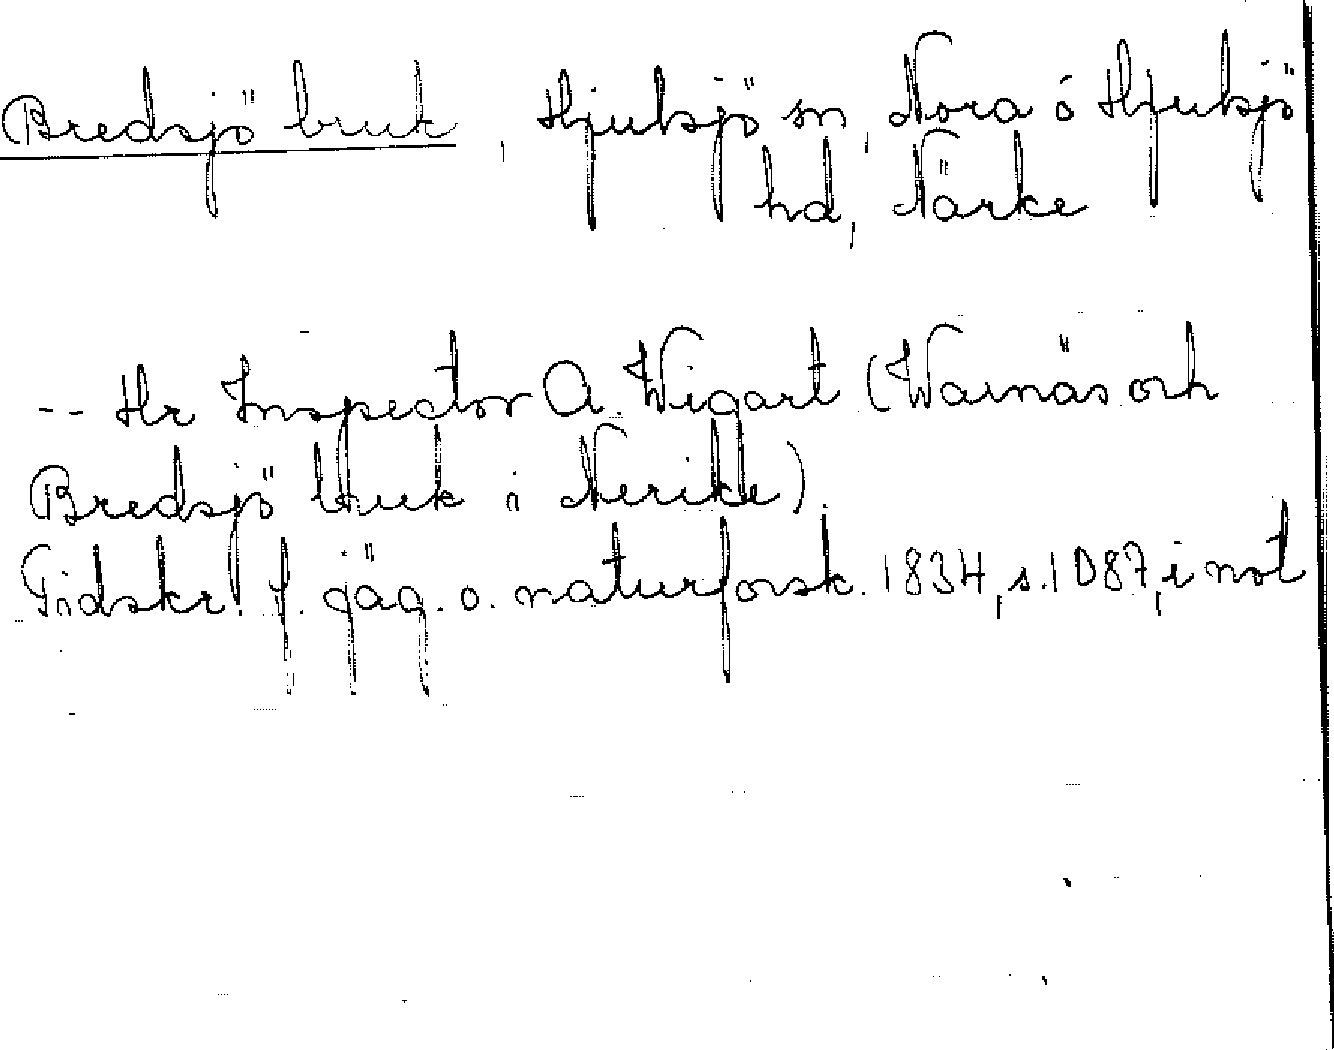 Bredsjö bruk, Hjulsjö sn, Nora o Hjulsjö
hd, Närke
-- Hr Inspector A. Wigart (Warnäs och
Bredsjö bruk i Nerike)
Tidskr. f. jäg. o. naturforsk. 1834, s. 1087, i not